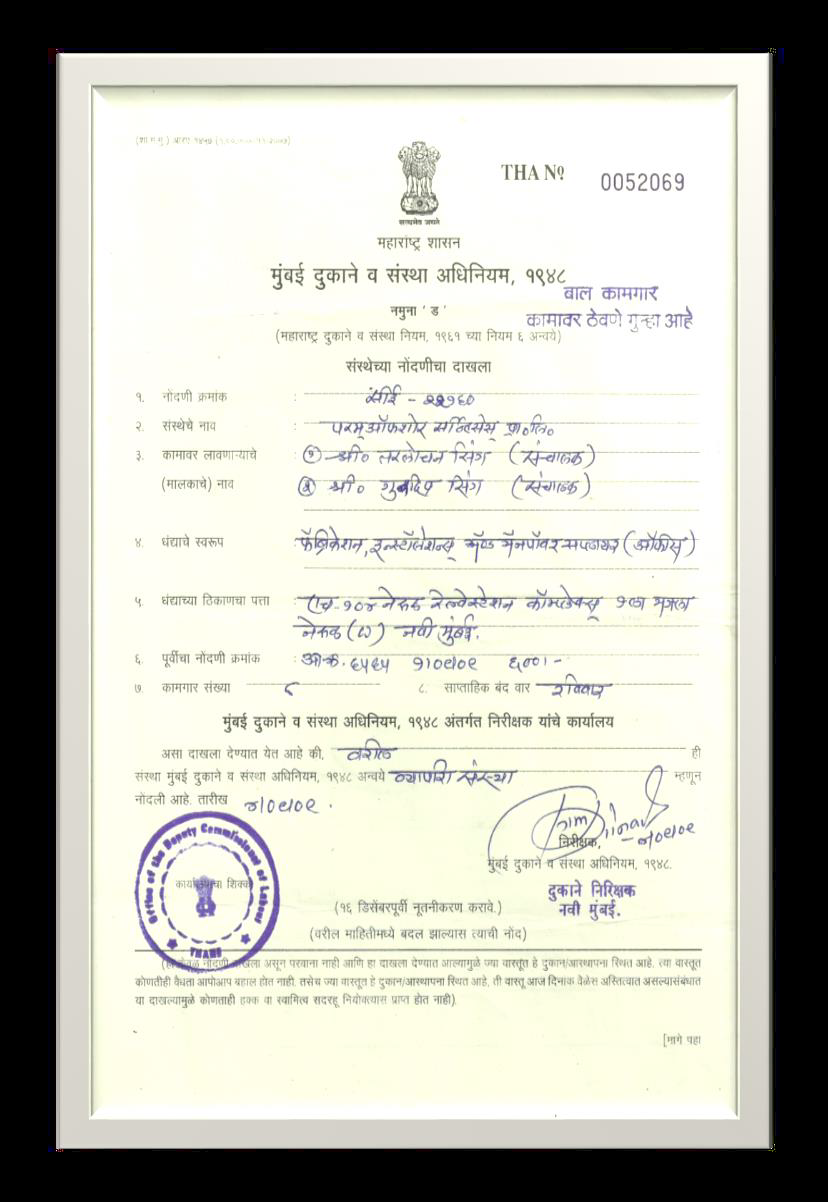 THA Nº 0052069
सत्यमेव जयते
महाराष्ट्र शासन
मुंबई दुकाने व संस्था अधिनियम, १९४८
बाल कामगार
कामावर ठेवणे गुन्हा आहे
नमुना ' ड '
(महाराष्ट्र दुकाने व संस्था नियम, १९६१ च्या नियम ६ अन्वये)
संस्थेच्या नोंदणीचा दाखला
१. नोंदणी क्रमांक :
२. संस्थेचे नाव : परम् ऑफशोर सर्व्हिसेस् प्रा०लि०
३. कामावर लावणाऱ्याचे : (१) श्री० तरलोचन सिंग (संचालक)
(मालकाचे) नाव (२) श्री० गुरूदिप सिंग (संचालक)
४. धंद्याचे स्वरूप : फॅब्रिकेशन, इन्स्टॉलेशन्स् अॅण्ड मॅनपॉवर सप्लायर (ऑफीस)
५. धंद्याच्या ठिकाणचा पत्ता : एच-१०४ नेरुळ रेल्वेस्टेशन कॉम्प्लेक्स् १ला मजला
नेरुळ (प) नवी मुंबई.
६. पूर्वीचा नोंदणी क्रमांक :
७. कामगार संख्या ८ ८. साप्ताहिक बंद वार रविवार
मुंबई दुकाने व संस्था अधिनियम, १९४८ अंतर्गत निरीक्षक यांचे कार्यालय
असा दाखला देण्यात येत आहे की, वरील ही
संस्था मुंबई दुकाने व संस्था अधिनियम, १९४८ अन्वये व्यापारी संस्था म्हणून
नोंदली आहे. तारीख
निरीक्षक,
मुंबई दुकाने व संस्था अधिनियम, १९४८.
दुकाने निरिक्षक
नवी मुंबई.
Office of the Deputy Commissioner of Labour
THANE
कार्यालयाचा शिक्का
(१६ डिसेंबरपूर्वी नूतनीकरण करावे.)
(वरील माहितीमध्ये बदल झाल्यास त्याची नोंद)
नोंदणी दाखला असून परवाना नाही आणि हा दाखला देण्यात आल्यामुळे ज्या वास्तूत हे दुकान/आस्थापना स्थित आहे. त्या वास्तूत
कोणतीही वैधता आपोआप बहाल होत नाही. तसेच ज्या वास्तूत हे दुकान/आस्थापना स्थित आहे, ती वास्तू आज दिनांक वेळेस अस्तित्वात असल्यासंबंधात
या दाखल्यामुळे कोणताही हक्क वा स्वामित्व सदरहू नियोक्त्यास प्राप्त होत नाही).
[मागे पहा